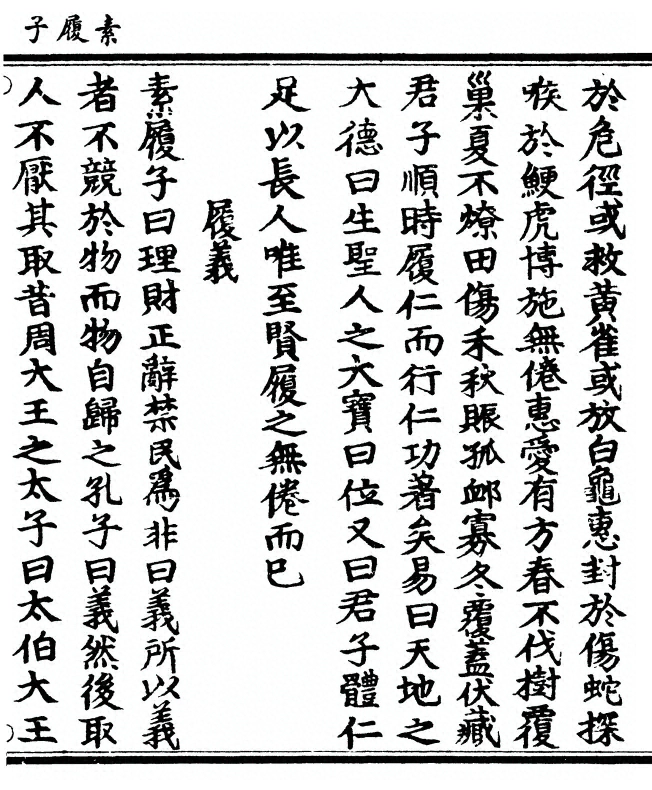 素履子
於危徑或救黃雀或放白龜惠封於傷蛇探
喉於鯁虎博施無倦惠愛有方春不伐樹覆
巢夏不燎田傷禾秋賑孤卹寡冬覆蓋伏藏
君子順時履仁而行仁功著矣易曰天地之
大德曰生聖人之大寶曰位又曰君子體仁
足以長人唯至賢履之無倦而已
履義
素履子曰理財正辭禁民爲非曰義所以義
者不競於物而物自歸之孔子曰義然後取
人不厭其取昔周大王之太子曰太伯大王